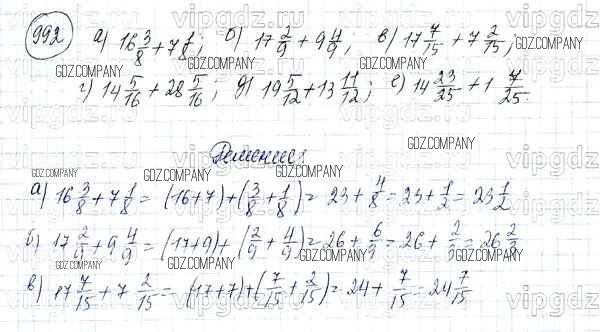 992 а) 16 3/8 + 7 1/8; б) 17 2/9 + 9 4/9; в) 17 7/15 + 7 2/15;
г) 14 5/16 + 28 5/16; д) 19 5/12 + 13 11/12; е) 14 23/25 + 1 7/25.
Решение:
а) 16 3/8 + 7 1/8 = (16+7)+(3/8 + 1/8) = 23 + 4/8 = 23 + 1/2 = 23 1/2
б) 17 2/9 + 9 4/9 = (17+9) + (2/9 + 4/9) = 26 + 6/9 = 26 + 2/3 = 26 2/3
в) 17 7/15 + 7 2/15 = (17+7)+(7/15 + 2/15) = 24 + 7/15 = 24 7/15
GDZ.COMPANY
vipgdz.com